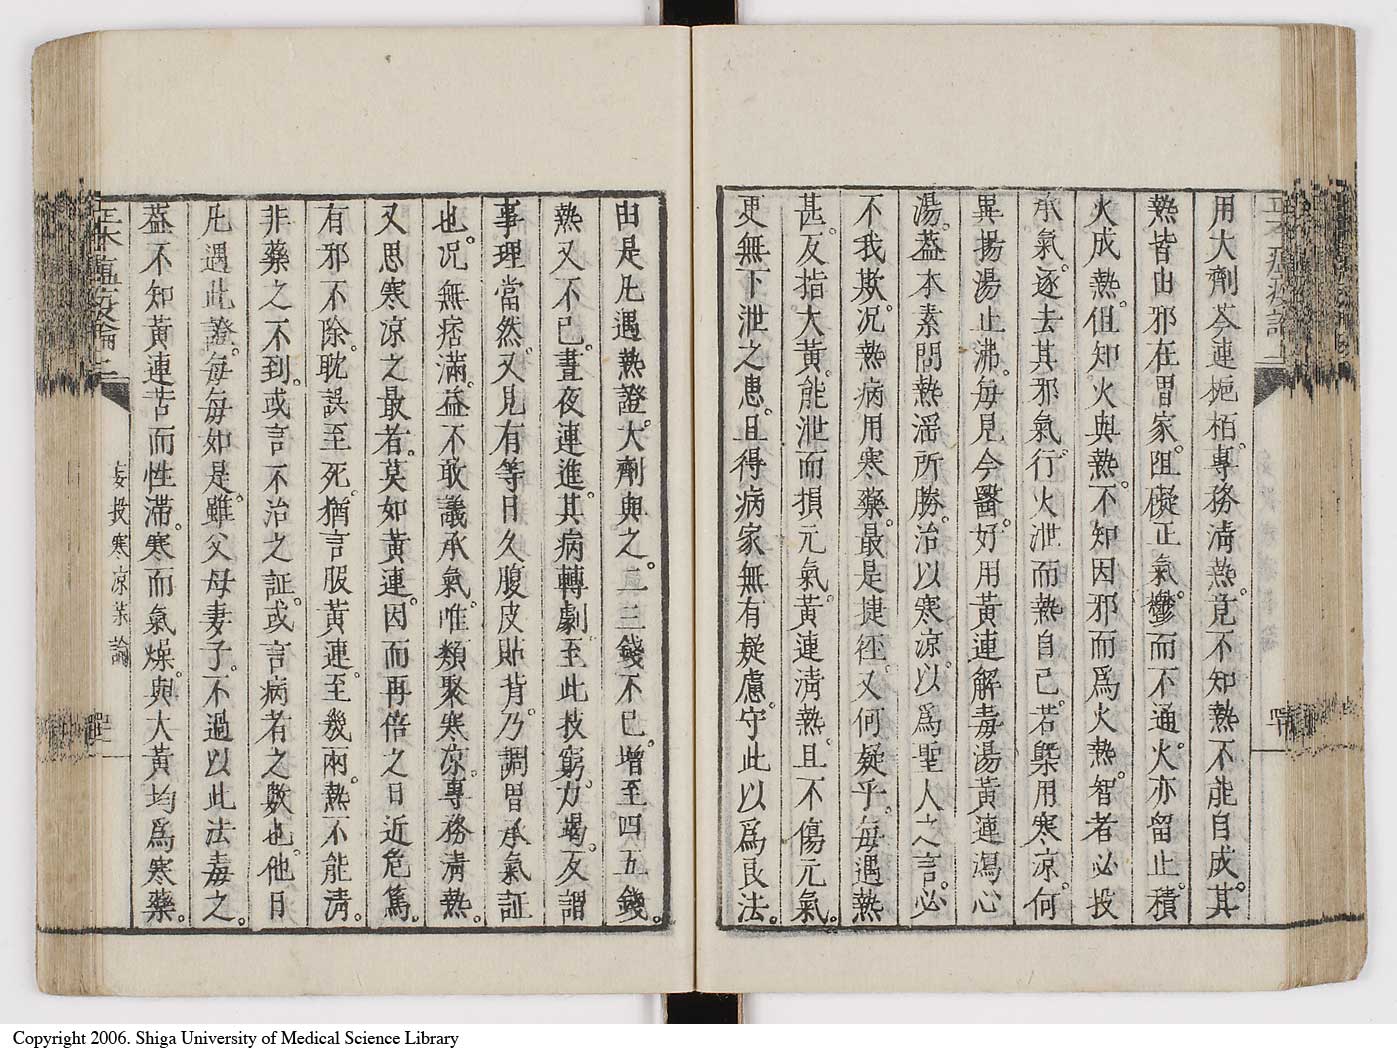 用大劑芩連梔栢。專務清熱。竟不知熱不能自成。其
熱皆由邪在胃家。阻礙正氣。鬱而不通。火亦留止。積
火成熱。但知火與熱。不知因邪而爲火熱。智者必投
承氣。逐去其邪。氣行火泄。而熱自已。若槩用寒凉。何
異揚湯止沸。每見今醫。好用黃連解毒湯黃連瀉心
湯。葢本素問熱滛所勝。治以寒凉。以爲聖人之言。必
不我欺。况熱病用寒藥。最是捷徑。又何疑乎。每遇熱
甚。反指大黃。能泄而損元氣。黃連淸熱。且不傷元氣。
更無下泄之患。且得病家無有疑慮。守此以爲良法。
由是凢遇熱證。大劑與之。二三錢不已。增至四五錢。
熱又不已。晝夜連進。其病轉劇。至此技窮。力竭。反謂
事理當然。又見有等日久腹皮貼背。乃調胃承氣証
也。况無痞滿。葢不敢議承氣。唯類聚寒凉。專務淸熱。
又思寒凉之最者。莫如黃連。因而再倍之。日近危篤。
有邪不除。耽誤至死。猶言服黃連。至幾兩。熱不能淸。
非藥之不到。或言不治之証。或言病者之數也。他日
凢遇此證。每每如是。雖父母妻子。不過以此法毒之。
葢不知黃連苦而性滯。寒而氣燥。與大黃均爲寒藥。
妄投寒凉藥論
Copyright 2006. Shiga University of Medical Science Library